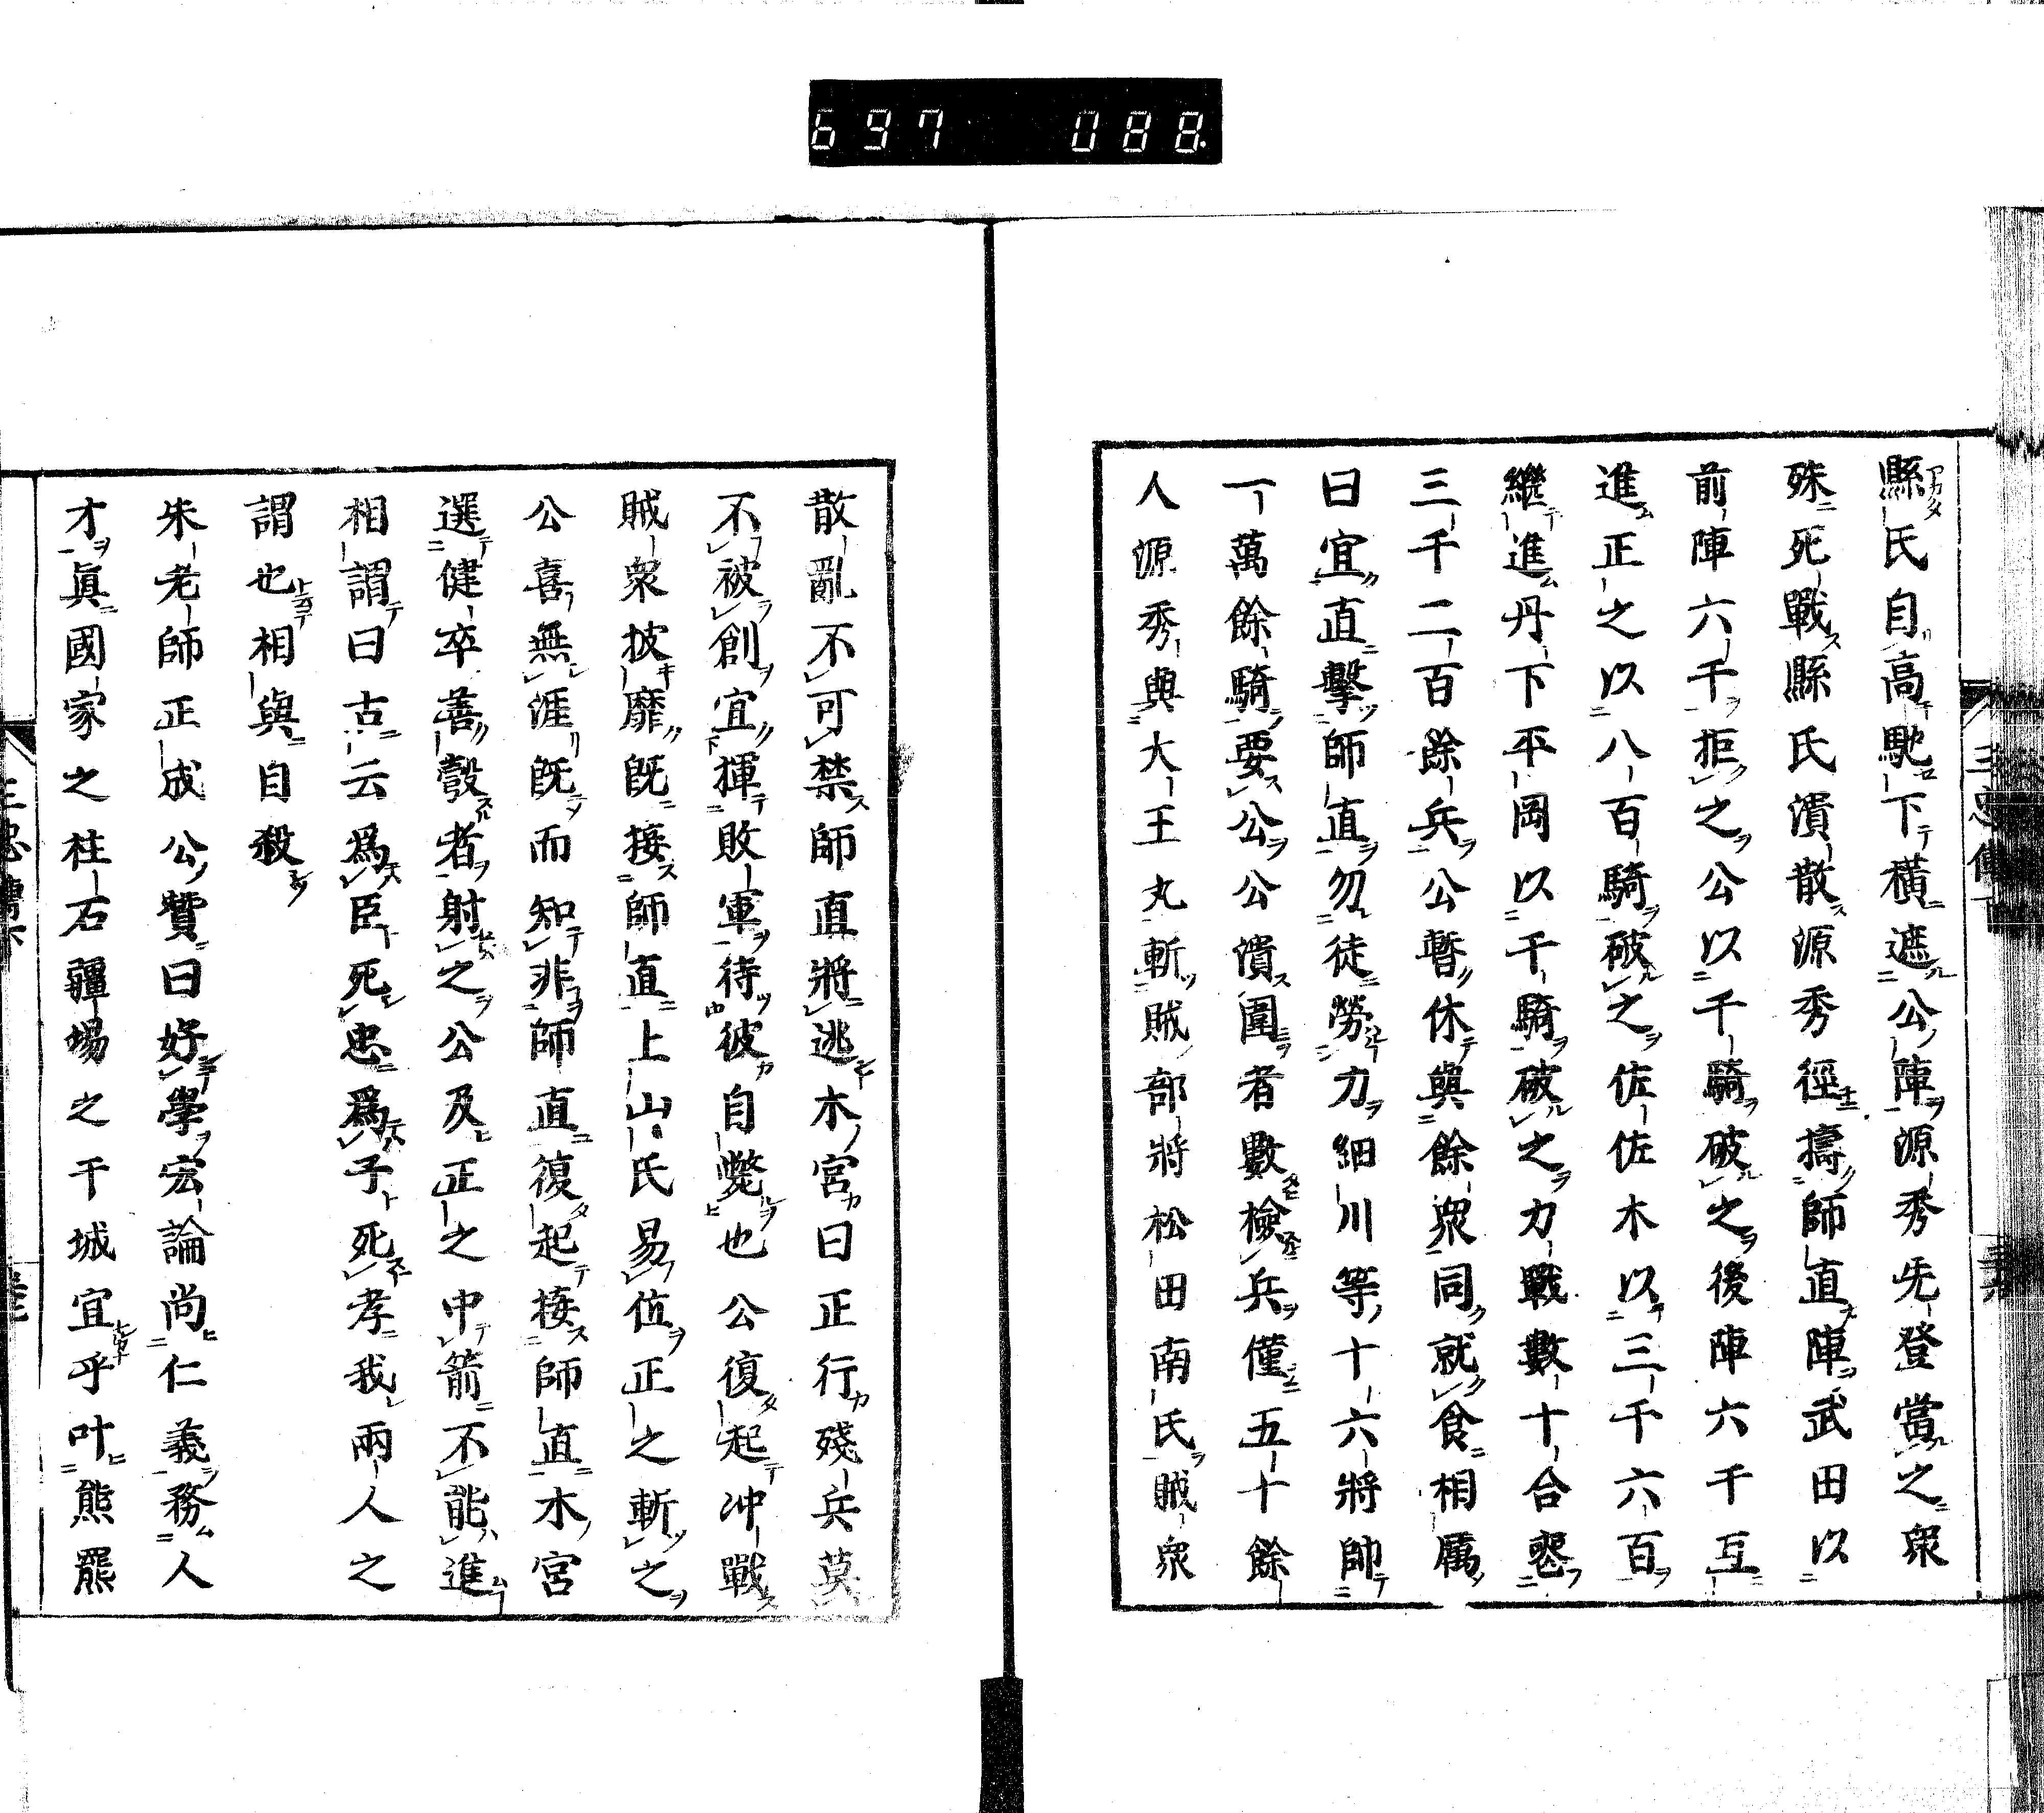 697 088
縣氏自高馳下橫遮公陣源秀旡登當之衆
殊死戰縣氏潰散源秀徑擣師直陣武田以
前陣六千拒之公以千騎破之後陣六千互
進正之以八百騎破之佐佐木以三千六百
繼進丹下平岡以千騎破之力戰數十合
三千二百餘兵公暫休與餘衆同就食相厲
曰宜直擊師直勿徒勞力細川等十六將帥
一萬餘騎要公公潰圍者數檢兵僅五十餘
人源秀與大王丸斬賊部將松田南氏賊衆
散亂不可禁師直將逃木宮曰正行殘兵莫
不被創宜揮敗軍待彼自斃也公復起冲戰
賊衆披靡旣接師直上山氏易位正之斬之
公喜無涯旣而知非師直復起接師直木宮
選健卒善彀者射之公及正之中箭不能進
相謂曰古云爲臣死忠爲子死孝我兩人之
謂也相與自殺
朱老師正成公贊曰好學宏論尚仁義務人
才眞國家之柱石疆場之干城宜乎叶熊羆